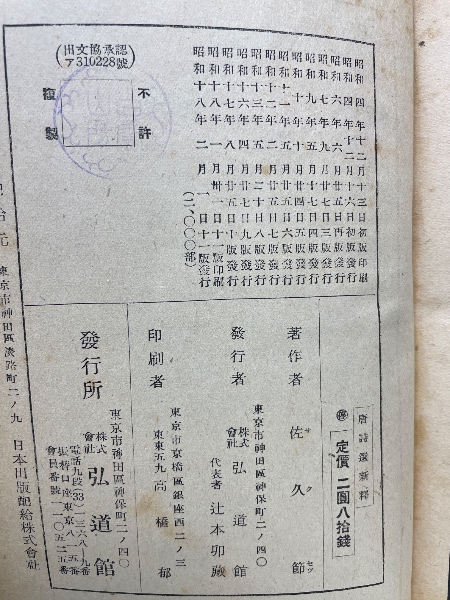 昭和四年十二月十三日初版印刷
昭和四年十二月十六日初版發行
昭和六年六月廿五日再版發行
昭和七年九月廿七日三版發行
昭和九年五月廿四日四版發行
昭和十年十月廿四日五版發行
昭和十三年五月二十日八版發行
昭和十六年四月廿七日九版發行
昭和十七年八月廿五日十版發行
昭和十八年一月卅一日十一版印刷
昭和十八年二月一日十一版發行
(二、〇〇〇部)
不許
複製
(出文協承認
ア310228號)
唐詩選新釋
㊞定價 二圓八拾錢
著作者 佐久節
サク セツ
東京市神田區神保町二ノ四〇
發行者 株式會社 弘道館
代表者 辻本卯藏
東京市京橋區銀座西二ノ三
印刷者 高橋郁
東東五九
東京市神田區神保町二ノ四〇
發行所 株式會社 弘道館
電話九段(33)
會員番號
東京市神田區淡路町二ノ九 日本出版配給株式會社